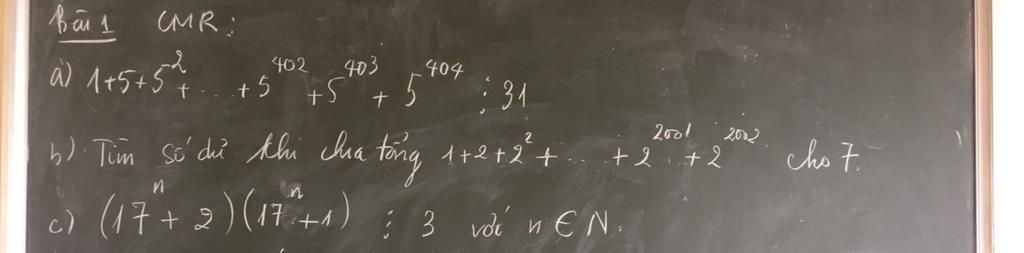 Bài 1 CMR:
a) 1+5+5² + ... + 5⁴⁰² + 5⁴⁰³ + 5⁴⁰⁴ ⋮ 31
b) Tìm số dư khi chia tổng 1+2+2² + ... + 2²⁰⁰¹ + 2²⁰⁰² cho 7.
c) (17ⁿ + 2)(17ⁿ + 1) ⋮ 3 với n ∈ N.